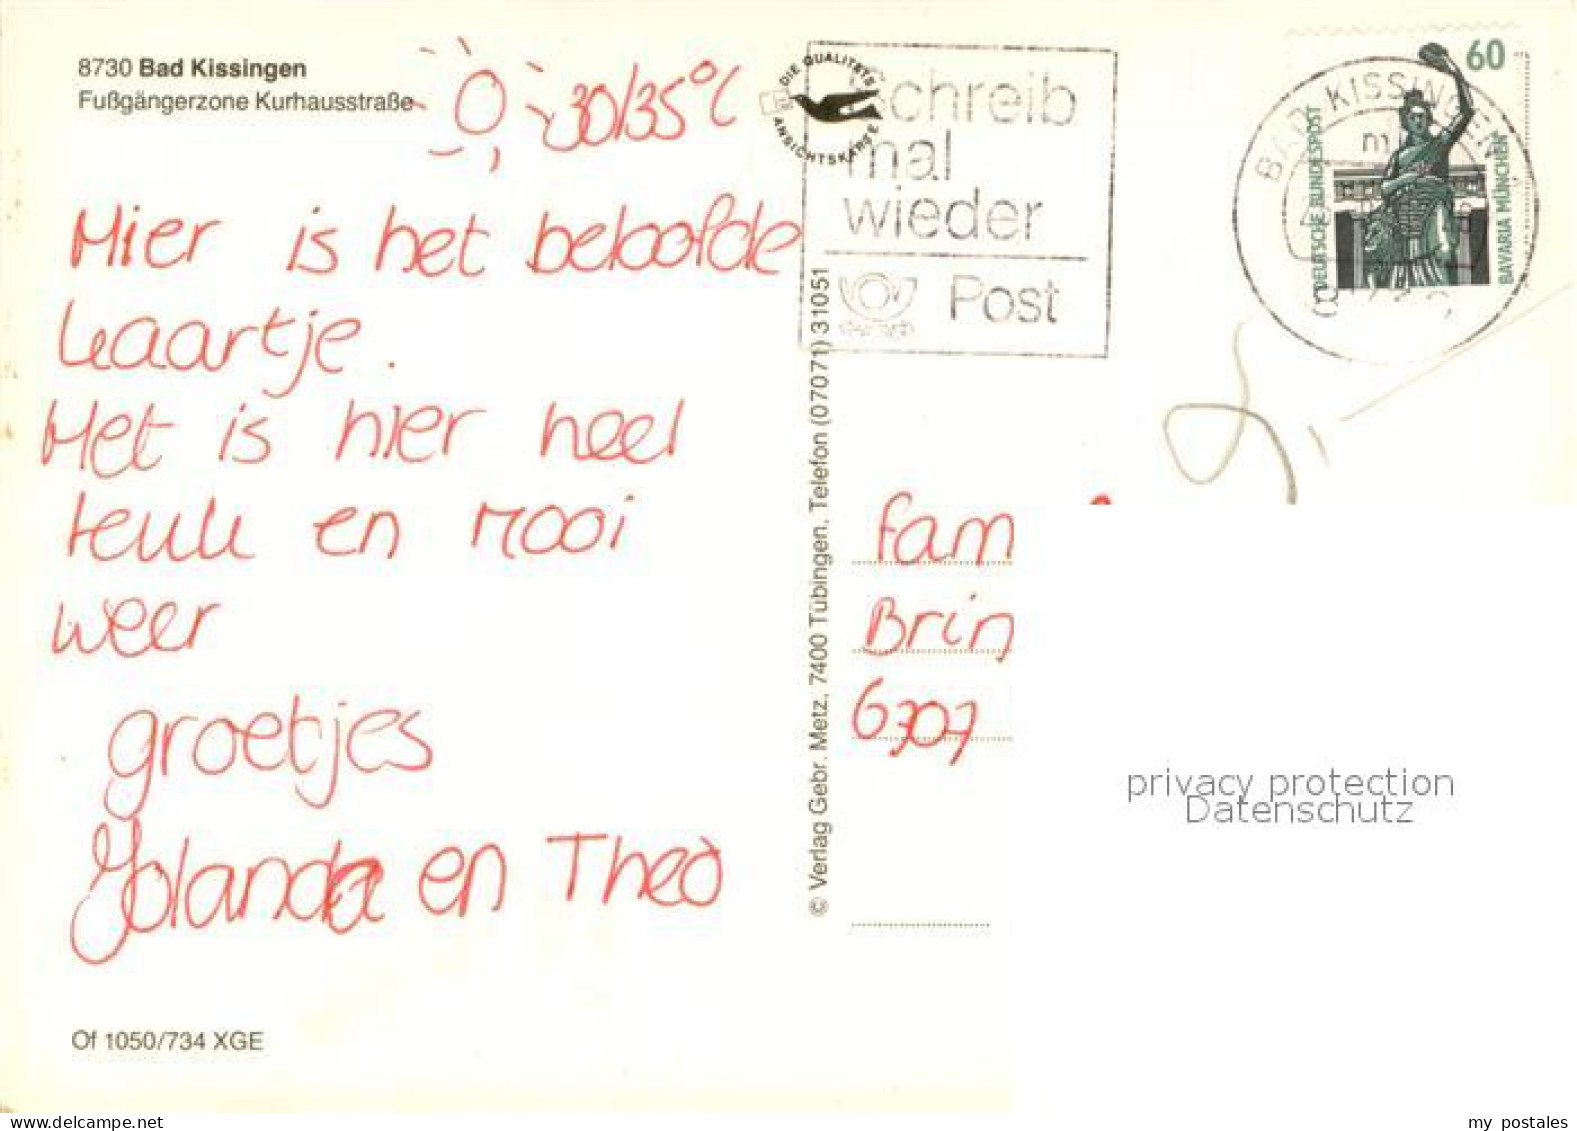 8730 Bad Kissingen
Fußgängerzone Kurhausstraße
30/35°C
DIE QUALITÄTS
ANSICHTSKARTE
Schreib
mal
wieder
Post
60
DEUTSCHE BUNDESPOST
BAVARIA MÜNCHEN
BAD KISSINGEN
Hier is het beloofde
kaartje.
Het is hier heel
leuk en mooi
weer
groetjes
Jolanda en Theo
Of 1050/734 XGE
© Verlag Gebr. Metz, 7400 Tübingen, Telefon (07071) 31051
fam
Brin
6307
privacy protection
Datenschutz
my postales